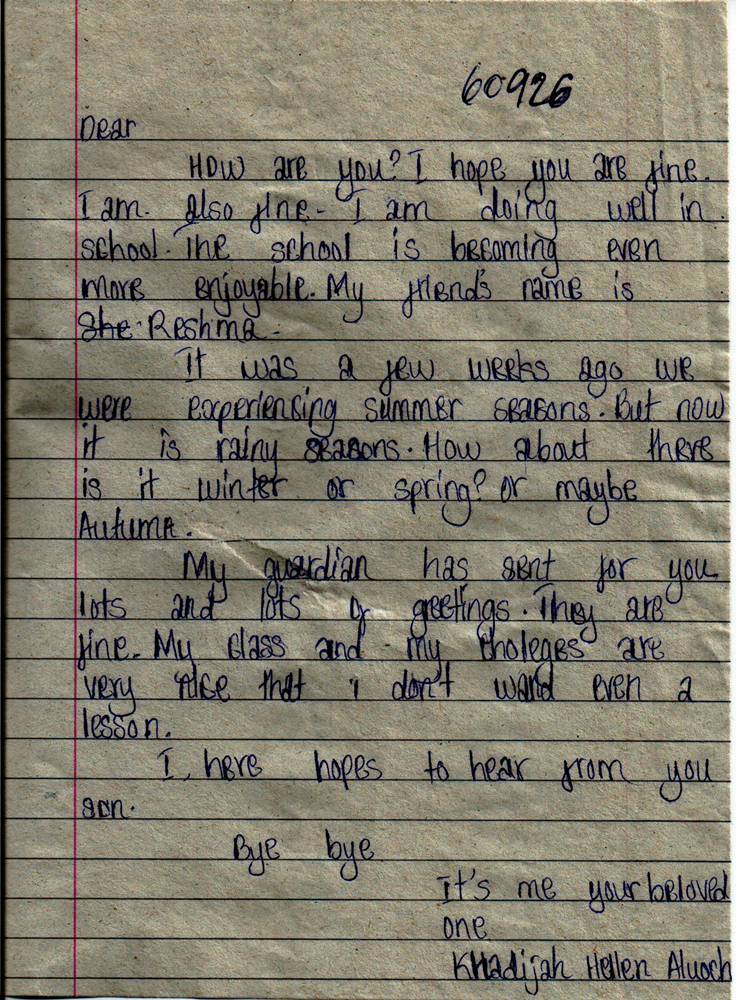 60926
Dear
How are you? I hope you are fine.
I am also fine - I am doing well in
school. The school is becoming even
more enjoyable. My friend's name is
She. Reshma.
It was a few weeks ago we
were experiencing summer seasons. But now
it is rainy seasons. How about there
is it winter or spring? or maybe
Autumn.
My guardian has sent for you
lots and lots of greetings. They are
fine. My class and my choleges are
very nice that i don't wand even a
lesson.
I, here hopes to hear from you
son.
Bye bye
It's me your beloved
one
Khadijah Hellen Aluoch